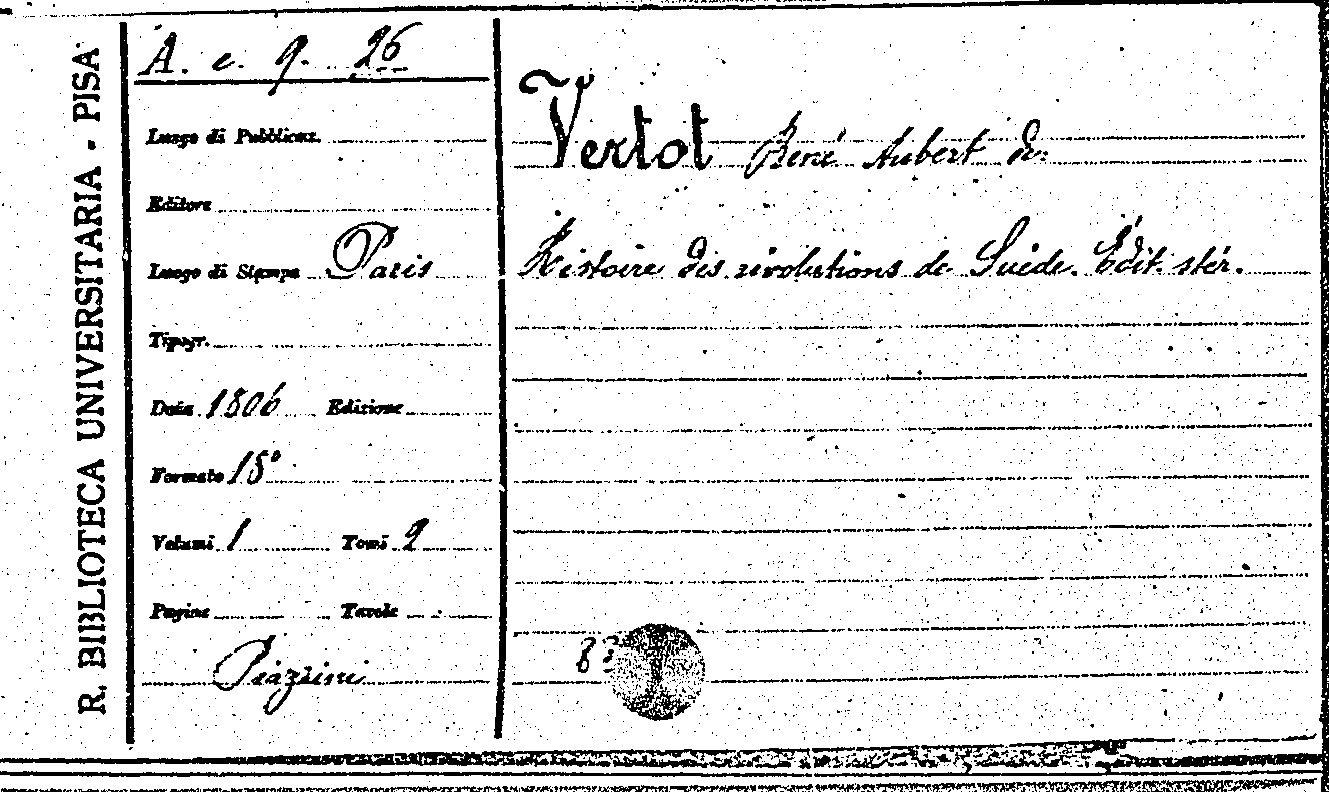 R. BIBLIOTECA UNIVERSITARIA - PISA
A. c. 9. 26
Luogo di Pubblicaz.
Editore
Luogo di Stampa Paris
Tipogr.
Data 1806 Edizione
Formato 18°
Volumi 1 Tomi 2
Pagine Tavole
Piazzini
Vertot René Aubert de
Histoire des révolutions de Suède. Édit. stér.